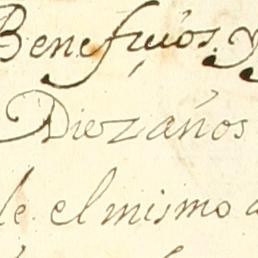 Beneficios. y
Diez años
de el mismo a